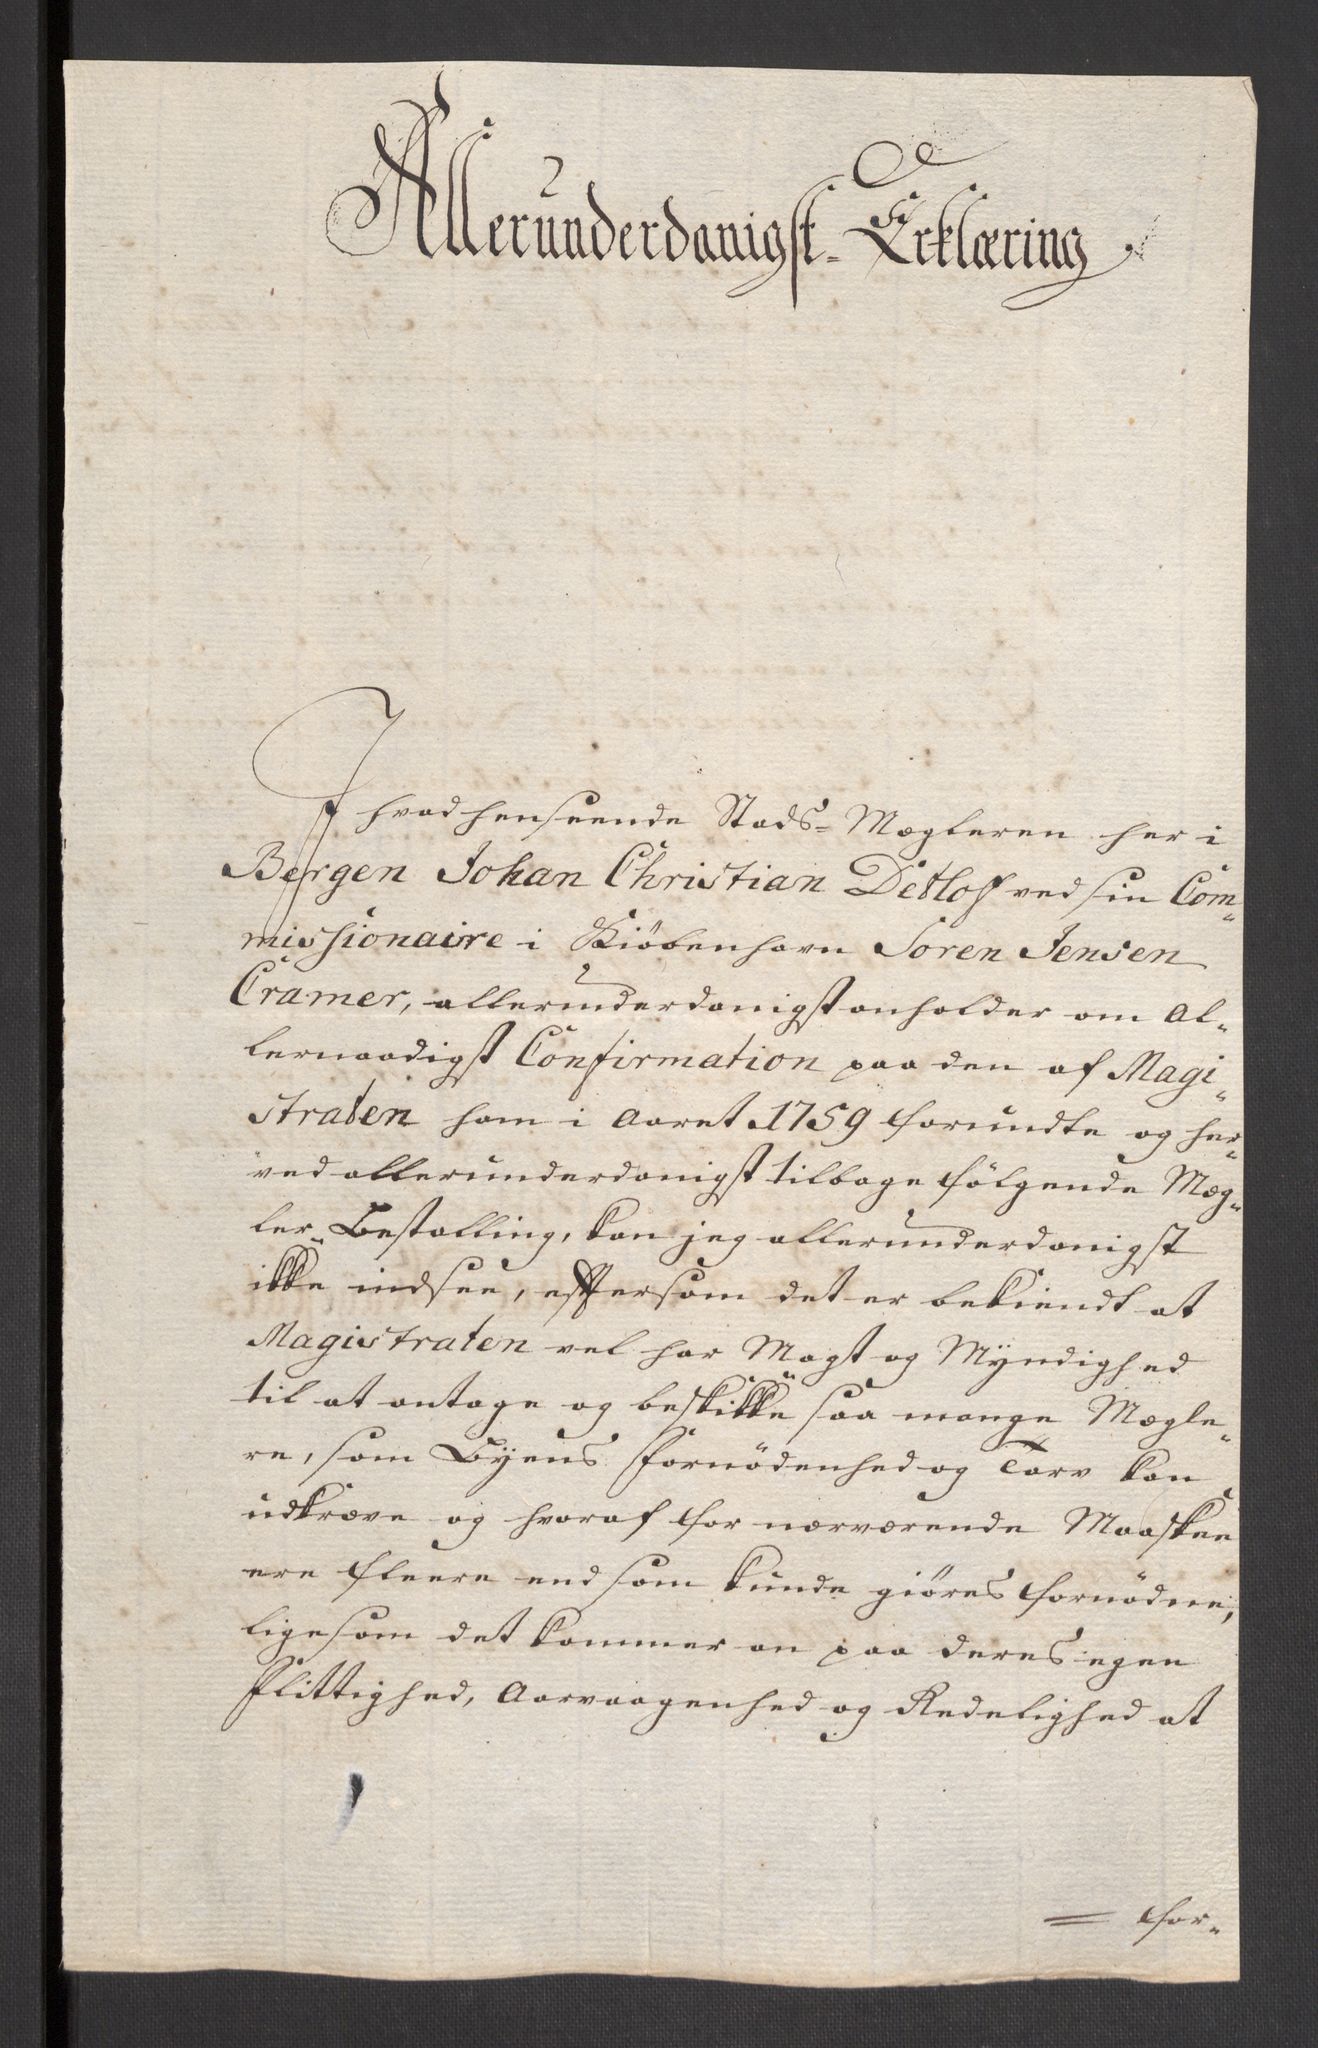 Allerunderdanigst- Erklæring
I hvad henseende Stads- Mægleren her i
Bergen Johan Christian Detlof ved sin Com-
missionaire i Kiöbenhavn Soren Jensen
Cramer, allerunderdanigst anholder om Al-
lernaadigst Confirmation paa den af Magi-
straten ham i Aaret 1759 forundte og her-
ved allerunderdanigst tilbage fölgende Mæg-
ler- Bestalling, kan jeg allerunderdanigst
ikke indsee, eftersom det er bekiendt at
Magistraten vel har Magt og Myndighed
til at antage og beskikke saa mange Mægle-
re, som Byens Fornödenhed og Tarv kan
udkræve og hvoraf for nærværende Maaskee
ere fleere end som kunde giöres fornödne,
ligesom det kommer an paa deres egen
Flittighed, Aarvaagenhed og Redelighed at
= for-